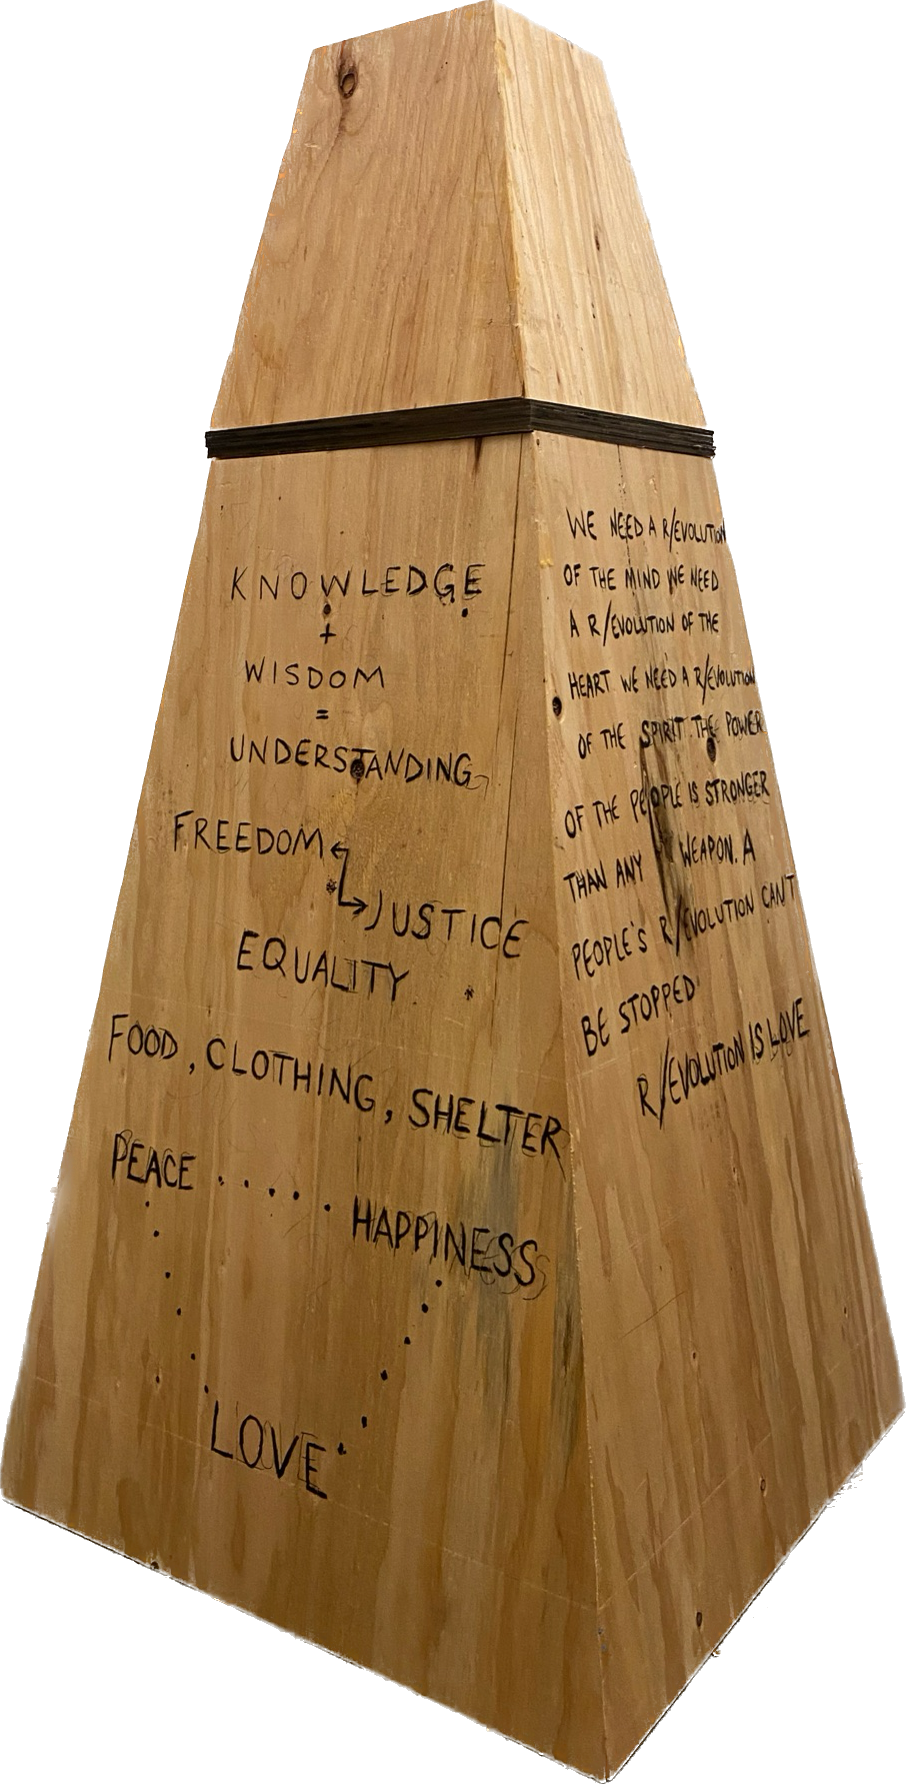 KNOWLEDGE
+
WISDOM
=
UNDERSTANDING
FREEDOM
JUSTICE
EQUALITY
FOOD, CLOTHING, SHELTER
PEACE ..... HAPPINESS
LOVE
WE NEED A R/EVOLUTION
OF THE MIND WE NEED
A R/EVOLUTION OF THE
HEART WE NEED A R/EVOLUTION
OF THE SPIRIT THE POWER
OF THE PEOPLE IS STRONGER
THAN ANY WEAPON. A
PEOPLE'S R/EVOLUTION CAN'T
BE STOPPED
R/EVOLUTION IS LOVE